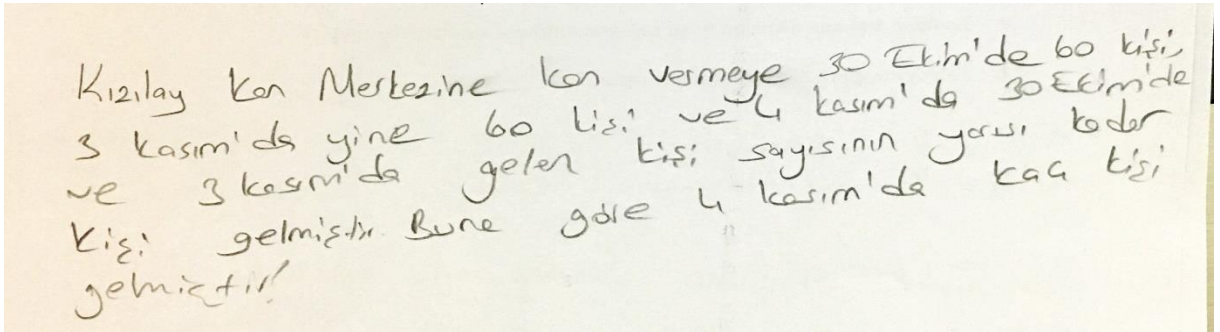 Kızılay Kan Merkezine kan vermeye 30 Ekim'de 60 kişi,
3 kasım'da yine 60 kişi ve 4 kasım'da 30 Ekim'de
ve 3 kasım'da gelen kişi sayısının yarısı kadar
kişi gelmiştir. Buna göre 4 kasım'da kaç kişi
gelmiştir!